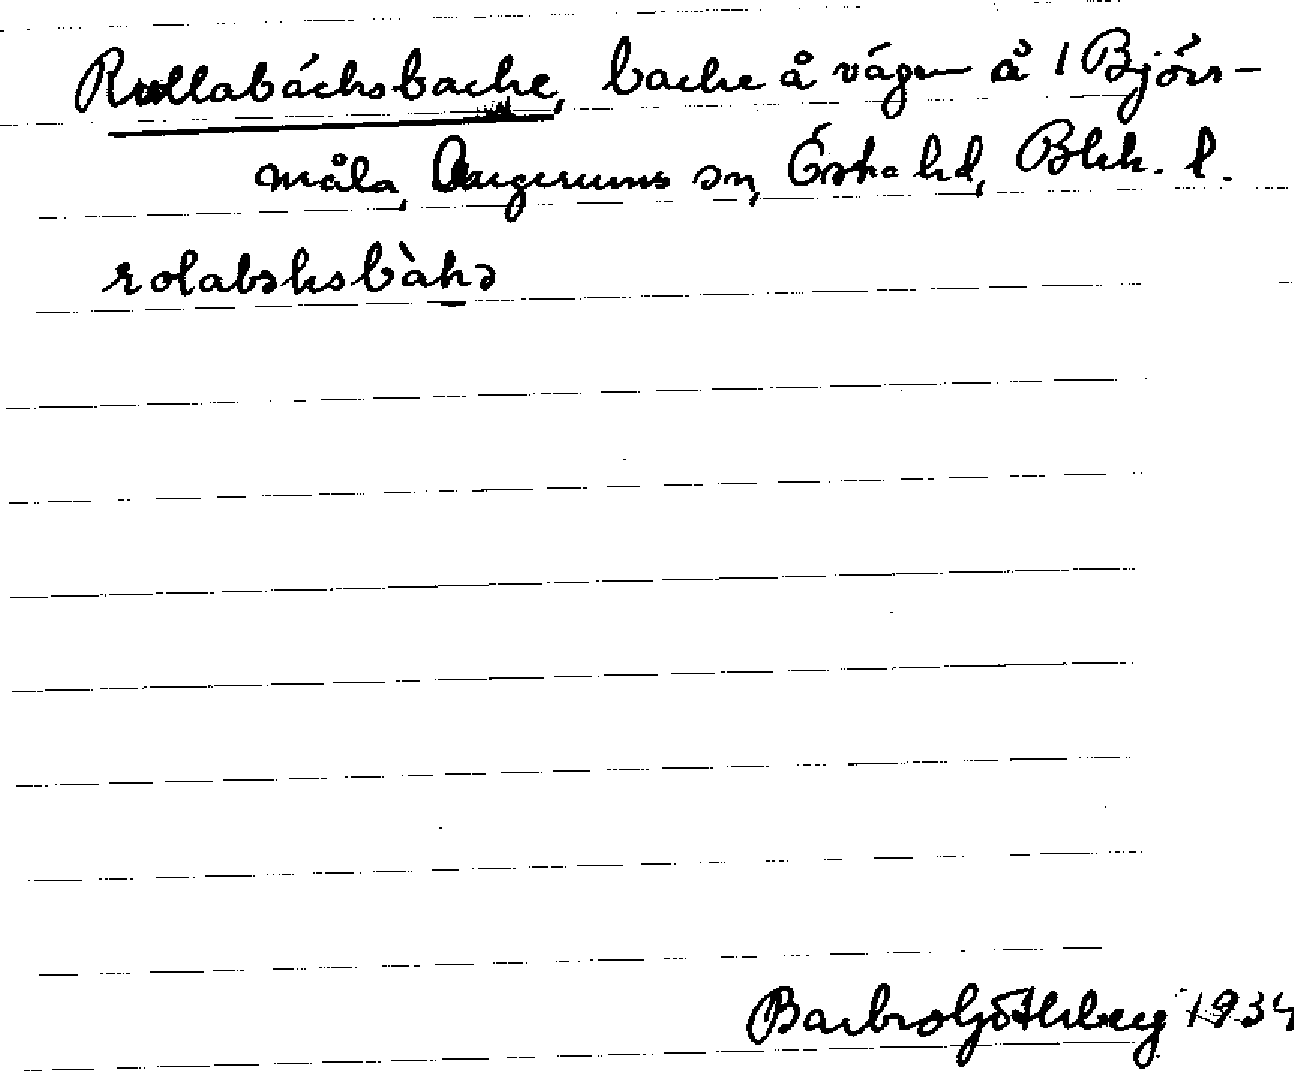 Rullabäcksbacke, backe å vägen å 1 Björs-
måla, Augerums sn, Östra hd, Blek. l.
rolabəksbàkə
Barbro Götherberg 1934